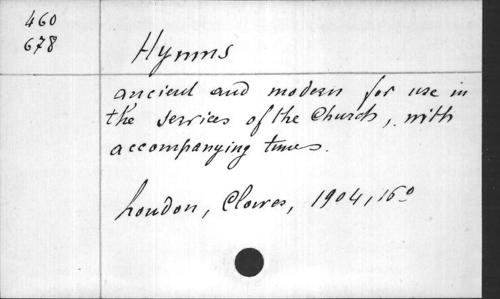 460
678
Hymns
ancient and modern for use in
the services of the Church, with
accompanying tunes.
London, Clowes, 1904, 16º